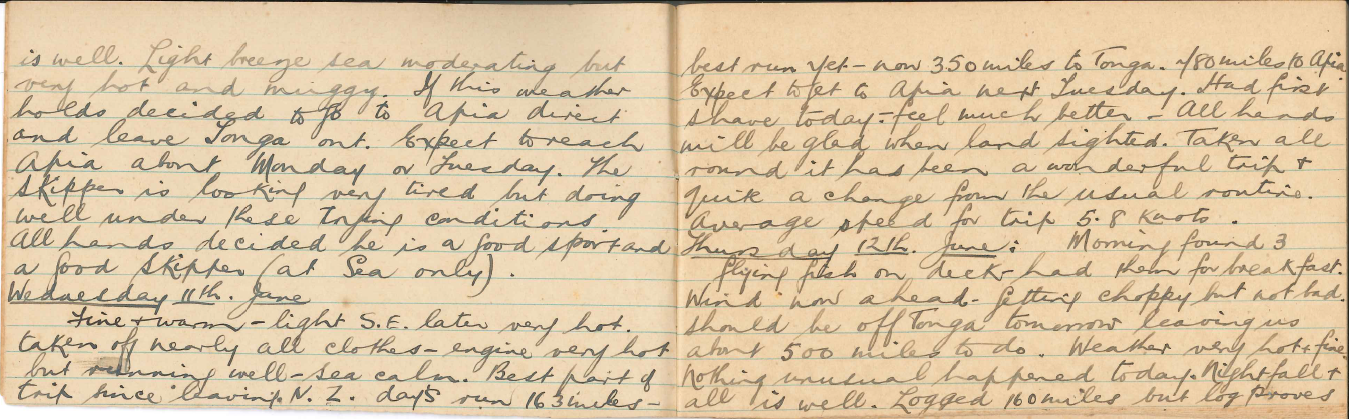 is well. Light breeze sea moderating but
very hot and muggy. If this weather
holds decided to go to Apia direct
and leave Tonga out. Expect to reach
Apia about Monday or Tuesday. The
Skipper is looking very tired but doing
well under these trying conditions.
All hands decided he is a good sport and
a good skipper (at Sea only).
Wednesday 11th. June
Fine + warm - light S.E. later very hot.
taken off nearly all clothes - engine very hot
but running well - sea calm. Best part of
trip since leaving N.Z. days run 163 miles -
best run yet - now 350 miles to Tonga. 780 miles to Apia
Expect to get to Apia next Tuesday. Had first
shave today - feel much better - All hands
will be glad when land sighted. Taken all
round it has been a wonderful trip +
quite a change from the usual routine.
Average speed for trip 5.8 knots.
Thursday 12th. June: Morning found 3
flying fish on deck - had them for breakfast.
Wind now ahead - getting choppy but not bad.
should be off Tonga tomorrow leaving us
about 500 miles to do. Weather very hot + fine.
Nothing unusual happened today. Nightfall +
all is well. Logged 160 miles but log proves